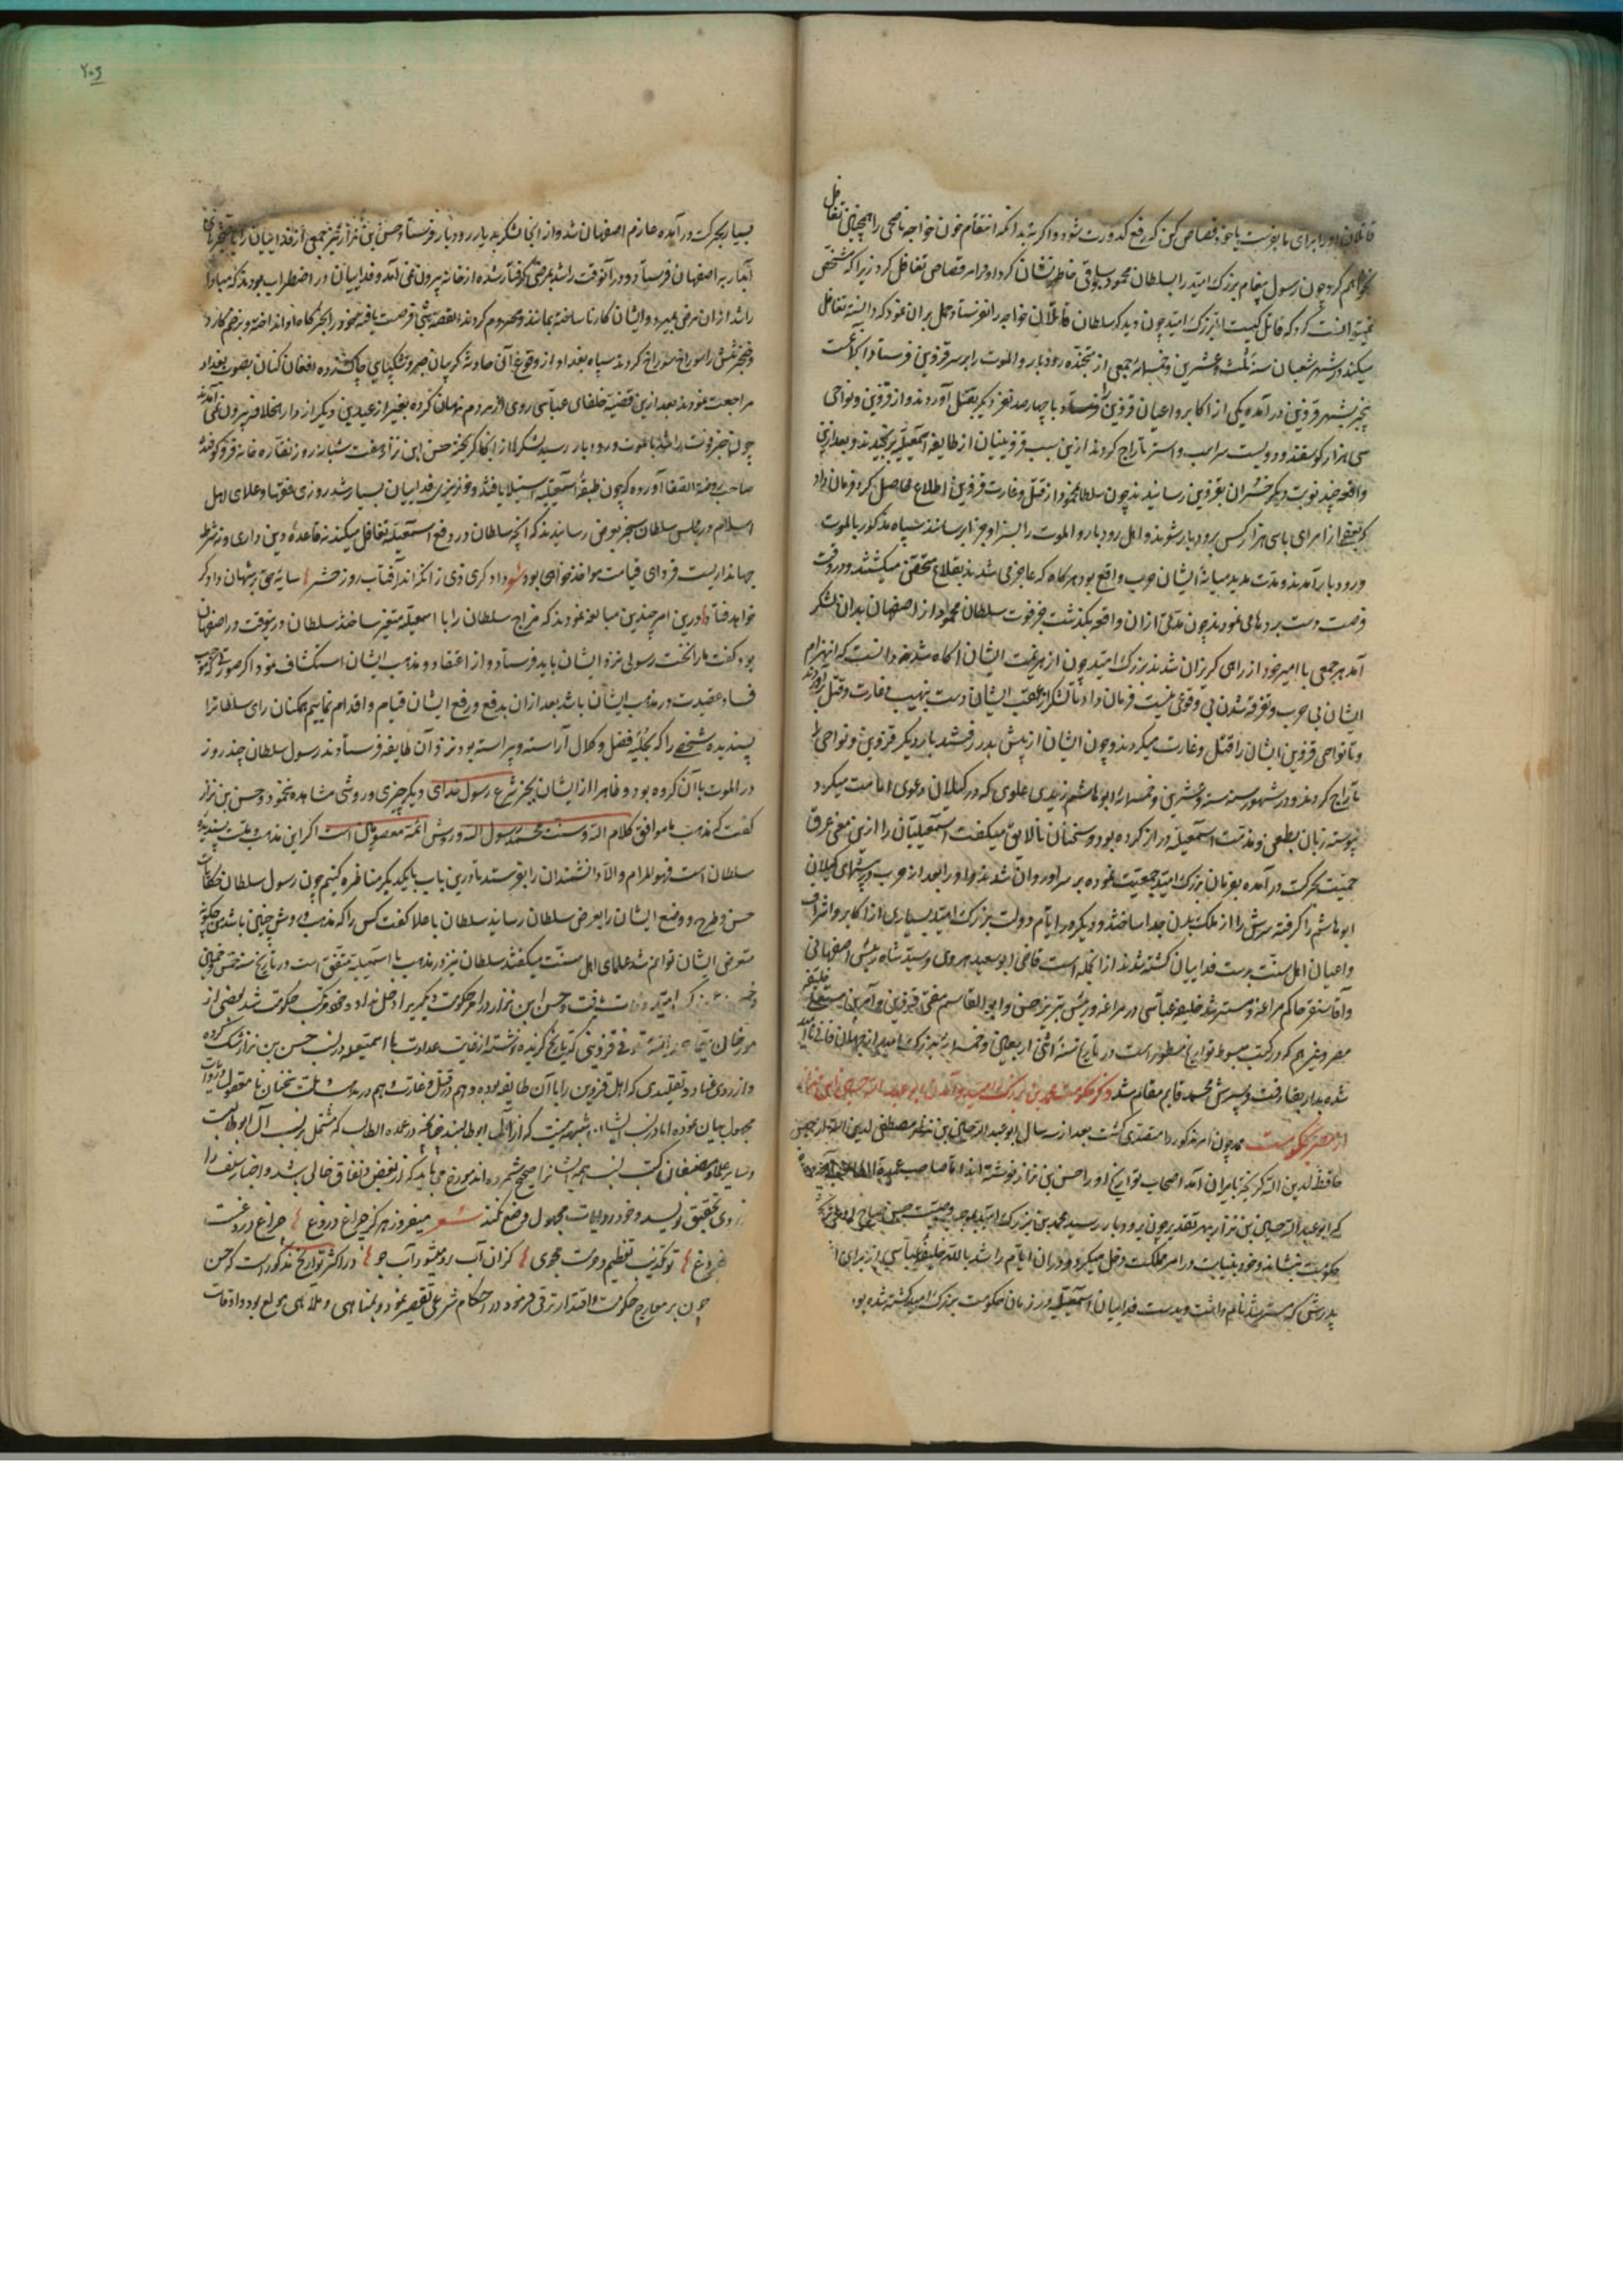 قاتلان او را برای ما بفرست یا خود قصاص کن که رفع کدورت شود و اگر نه بدانکه انتقام خون خواجه ناصحی را همچنان تغافل
نخواهم کرد چون رسول پیغام بزرک امید را بسلطان محمود سلجوقی خاطر نشان کرد او در امر قصاص تغافل کرد زیرا که مشخص
نمیتوانست کرد که قاتل کیست بزرک امید چون دید که سلطان قاتلان خواجه را نفرستاد حمل بران نمود که دانسته تغافل
میکند در شهر شعبان سنه ثلث و عشرین و خمسمائه جمعی از متجنده رودبار و الموت را بر سر قزوین فرستاد آن جماعت
بیخبر بشهر قزوین در آمده یکی از اکابر و اعیان قزوین را با چهار صد نفر دیکر بقتل آوردند و از قزوین و نواحی
سی هزار کوسفند و دویست سر اسب و استر تاراج کردند ازین سبب قزوینیان از طایفه اسمعیلیه برنجیدند و بعد ازین
واقعه چند نوبت دیکر بقزوین رسانیدند چون سلطان محمود از قتل و غارت قزوین اطلاع حاصل کرد فرمان داد
که بعضی از امرای با سی هزار کس برودبار شوند و اهل رودبار و الموت را بسزا و جزا رسانند سپاه مذکور بالموت
و رودبار آمدند و مدت مدید میانه ایشان حرب واقع بود هر کاه که عاجز می شدند بقلاع متحصن میکشتند و در وقت
فرصت دست برد ها می نمودند چون مدتی ازان واقعه بکذشت خبر فوت سلطان محمود از اصفهان بدان لشکر
آمد هر جمعی با امیر خود از راهی کریزان شدند بزرک امید چون از هزیمت ایشان آکاه شد خود دانست که انهزام
ایشان بی حرب و تفرقه شدن بی وقوعی نیست فرمان داد تا لشکر از عقب ایشان دست بنهیب و غارت و قتل برآوردند
و تا نواحی قزوین ایشان را قتل و غارت میکردند و چون ایشان از پیش بدر رفتند بار دیکر قزوین و نواحی را
تاراج کردند و در شهور سنه ستة و عشرین و خمسمائه ابوهاشم زیدی علوی که در کیلان دعوی امامت میکرد
پیوسته زبان بطعن و مذمت اسمعیلیه دراز کرده بود و سخنان نالایق میکفت اسمعیلیان را ازین معنی عرق
حمیت بحرکت در آمده بفرمان بزرک امید جمعیت نموده بر سر او روان شدند و او را بعد از حرب
ابوهاشم را کرفته سرش را از ملک بدن جدا ساختند و دیکر در ایام دولت بزرک امید بسیاری از اکابر و اشراف
و اعیان اهل سنت بدست فداییان کشته شدند از انجمله است قاضی ابوسعید هروی و سید شاه رئیس اصفهانی
و آقسنقر حاکم مراغه و مسترشد خلیفه عباسی در مراغه و رئیس تبریز حسن و ابو القاسم مفتی قزوین و آمر بن مستعلی خلیفه
مصر و غیرهم که در کتب مبسوط تواریخ مسطور است در تاریخ سنه اثنی و خمسمائه بزرک امید ازین جهان فانی ناامید
شده بدار بقا رفت و پسرش محمد قایم مقام شد ذکر حکومت محمد بن بزرک امید و آمدن ابو عبد الله حسین ابن نزار
از مصر بحکومت محمد چون امر مذکور را متصدی کشت بعد از سه سال ابو عبد الله حسین بن نزار مصطفی لدین الله از حبس
حافظ لدین الله کریخته بایران آمد اصحاب تواریخ او را حسن بن نزار نوشته اند اما صاحب عمدة الطالب
که ابو عبد الله حسین بن نزار بهر تقدیر چون برودبار رسید محمد بن بزرک امید بموجب وصیت حسن صباح او را بر
حکومت نشانید و خود بنیابت در امر مملکت دخل میکرد و دران ایام راشد بالله خلیفه عباسی از برای
پدرش که مسترشد نام داشت و بدست فداییان اسمعیلیه در زمان حکومت بزرک امید کشته شده بود
۲۰۶
بسیار بحرکت در آمده عازم اصفهان شد و از انجا لشکر بدیار رودبار فرستاد حسن بن نزار نیز جمعی از فداییان را با خنجرهای
آبدار به اصفهان فرستاد و در آنوقت راشد بمرضی کرفتار شده از خانه بیرون نمی آمد و فداییان در اضطراب بودند که مبادا
راشد ازان مرض بمیرد و ایشان کار نا ساخته بمانند و محروم کردند القصه شبی فرصت یافته خود را بخرکاه او انداخته و بزخم کارد
و خنجر تنش را سوراخ سوراخ کردند سپاه بغداد از وقوع آن حادثه کریبان صبر و شکیبایی چاک زده افغان کنان بصوب بغداد
مراجعت نمودند بعد ازین قضیه خلفای عباسی روی از مردم نهان کرده بغیر از عیدین دیکر از دار الخلافه بیرون نمی آمدند
چون خبر فوت راشد بالموت و رودبار رسید لشکر او از انجا کریخته حسن ابن نزار هفت شبانه روز نقاره خانه فرو کوفته
صاحب روضة الصفا آورده که چون طبقه اسمعیلیه استیلا یافتند و خونریزی فداییان بسیار شد روزی فقها و علمای اهل
اسلام در مجلس سلطان سنجر بعرض رسانیدند که آنچه سلطان در دفع اسمعیلیه تغافل میکند نه قاعده دین داری و نه شرط
جهانداریست فردای قیامت مواخذ خواهی بود شعر داد کری ذی ز انکه اندر آفتاب روز حشر سایه حق بر شهان داد کر
خواهد فتاد درین امر چندین مبالغه نمودند که مزاج سلطان را با اسمعیلیه متغیر ساختند سلطان در آنوقت در اصفهان
بود کفت ما را نخست رسولی نزد ایشان باید فرستاد و از اعتقاد و مذهب ایشان استکشاف نمود اکر صورتی که موجب
فساد عقیدت در مذهب ایشان باشد بعد ازان بدفع و رفع ایشان قیام و اقدام نماییم همکنان رای سلطان را
پسندیده شخصی را که بحلیه فضل و کمال آراسته و پیراسته بود نزد آن طایفه فرستادند رسول سلطان چند روز
در الموت با آن کروه بود و ظاهرا از ایشان بجز شرع رسول خدای دیکر چیزی و روشی مشاهده ننمود و حسن بن نزار
کفت که مذهب ما موافق کلام الله و سنت محمد رسول الله و روش ائمه معصومین است اکر این مذهب و ملت پسندیده
سلطان است فهو المرام و الا دانشمندان را بفرستد تا درین باب با یکدیکر مناظره کنیم چون رسول سلطان حکایات
حسن و طرح و وضع ایشان را بعرض سلطان رسانید سلطان با علما کفت کس را که مذهب و روش چنین باشد من چکونه
متعرض ایشان توانم شد علمای اهل سنت میکفتند سلطان نیز در مذهب با اسمعیلیه متفق است در تاریخ سنه
بزرک امید وفات یافت و حسن ابن نزار در امر حکومت دیکر برا دخل نداد و خود مرتکب حکومت شد بعضی از
مورخان مستوفی قزوینی که تاریخ کزیده نوشته از غایت عداوت با اسمعیلیه در نسب حسن بن نزار شک کرده
و از روی عناد و تقلیدی که اهل قزوین را با آن طایفه بوده و هم در قتل و غارت و هم در مذهب و ملت سخنان نامعقول و روایت
مجهول بیان نموده اما در نسب ایشان شبهه نیست که از آل ابوطالبند چنانچه در عمده الطالب که مشتمل بر نسب آل ابو طالبست
و سایر علما و مصنفان کتب نسب همه نسب ایشان را صحیح شمرده اند مورخ می باید که از تعصب و نفاق خالی باشد و اخبار سلف را
از روی تحقیق نویسد و خود روایات مجهول وضع نکند شعر میفروز هر کز چراغ دروغ چراغ دروغست
بی فروغ تعظیم دوست مجوی کزان آب رو میشود آب جو در اکثر تواریخ مذکور است که حسن
چون بر معارج حکومت و اقتدار ترقی فرمود در احکام شرعی تقصیر نمود و بمناهی و ملاهی مولع بود و اوقات